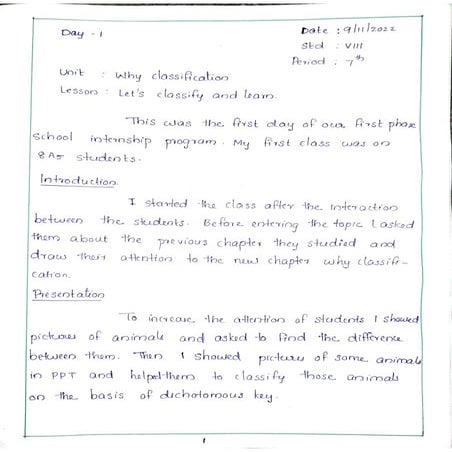 Day - 1
Date : 9/11/2022
Std : VIII
Period : 7th
Unit : Why classification
Lesson : Let's classify and learn.
This was the first day of our first phase
School internship program. My first class was on
8A5 students.
Introduction
I started the class after the Interaction
between the students. Before entering the topic I asked
them about the previous chapter they studied and
draw their attention to the new chapter why classifi-
cation.
Presentation
To increase the attention of students I showed
pictures of animals and asked to find the difference
between them. Then I showed pictures of some animals
in PPT and helped them to classify those animals
on the basis of dichotomous key.
1